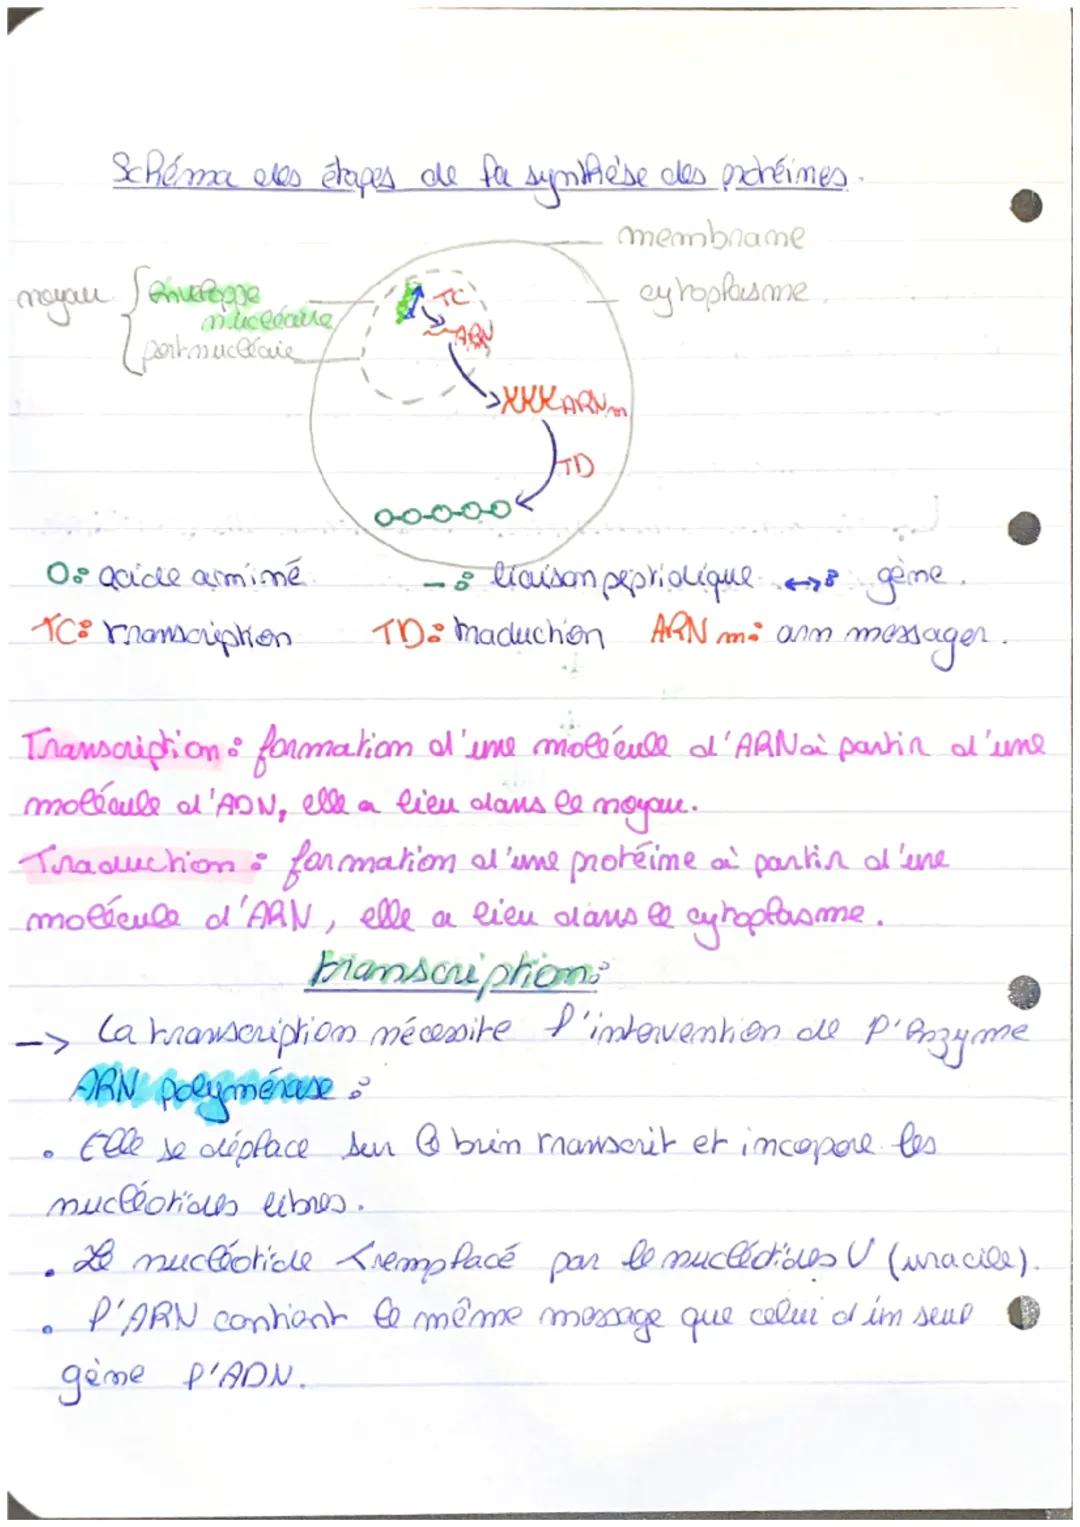 Schéma des étapes de la synthèse des protéines.
membrane
cytoplasme
noyau
enveloppe
nucléaire
port nucléaie
TC
ARN
ARNm
TD
O: acide aminé
-: liaison peptidique
↔: gène.
TC: transcription
TD: traduction
ARN m: arn messager.
Transcription: formation d'une molécule d'ARN à partir d'une
molécule d'ADN, elle a lieu dans le noyau.
Traduction: formation d'une protéine à partir d'une
molécule d'ARN, elle a lieu dans le cytoplasme.
transcription:
-> La transcription nécessite l'intervention de l'enzyme
ARN polymérase:
• Elle se déplace sur le brin transcrit et incopore les
nucléotides libres.
• Le nucléotide T remplacé par le nucléotides U (uracile).
• l'ARN contient le même message que celui d'un seul
gène l'ADN.